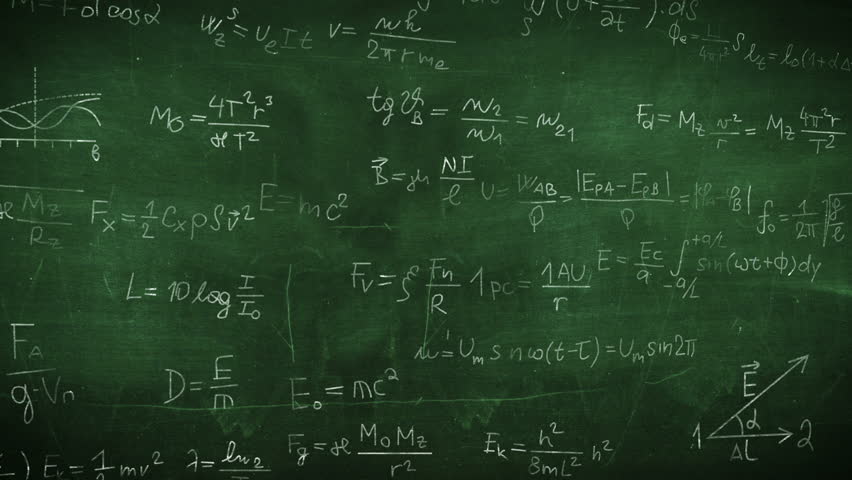 W_z^s = U_e I t
v = nh / 2πrm_e
Φ_e = L / 4πr²
l_t = l_0(1+αΔ
M_0 = 4T²r³ / ϰT²
tgϑ_B = n_2 / n_1 = n_21
F_d = M_z v²/r = M_z 4π²r / T²
B⃗ = μ NI / ℓ
U = W_AB / Q = |E_PA − E_PB| / Q = |φ_A − φ_B|
f_0 = 1/2π √g/ℓ
ϰ M_z / R_z
F_x = 1/2 C_x ρ S v⃗²
E = mc²
E = E_c / a ∫_{-a/2}^{+a/2} sin(ωt+ϕ)dy
L = 10 log I / I_0
F_v = ξ F_n / R
1 pc = 1AU / r
F_A / g·V_n
u' = U_m sin ω(t−τ) = U_m sin2π
D = E / m
E_0 = mc²
E⃗
α
1
2
Δl
E_v = 1/2 mv²
λ = ln 2
F_g = ϰ M_0 M_z / r²
E_k = h² / 8mL² n²